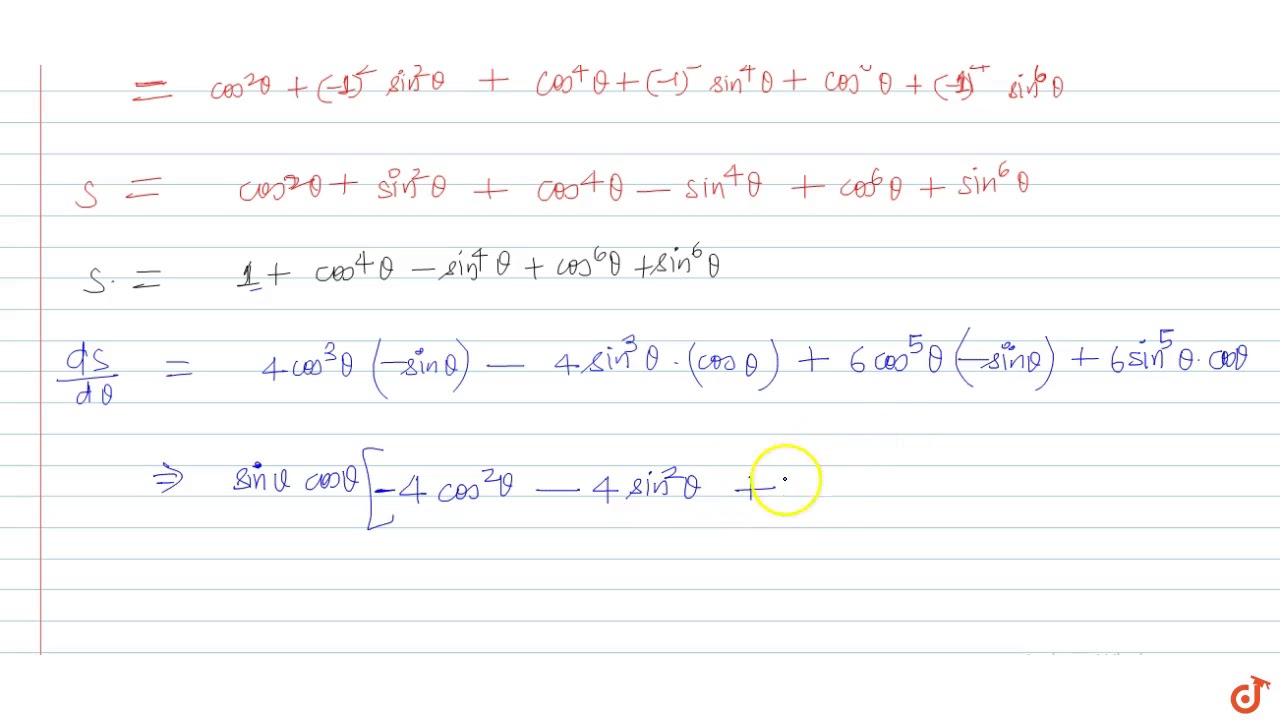 = cos²θ + (-1)² sin²θ + cos⁴θ + (-1) sin⁴θ + cos θ + (-1)⁴ sin⁶θ
S = cos²θ + sin²θ + cos⁴θ — sin⁴θ + cos⁶θ + sin⁶θ
S. = 1 + cos⁴θ — sin⁴θ + cos⁶θ + sin⁶θ
dS/dθ = 4cos³θ (-sinθ) — 4 sin³θ · (cosθ) + 6 cos⁵θ (-sinθ) + 6 sin⁵θ · cosθ
⇒ sinθ cosθ [-4 cos²θ — 4 sin²θ +